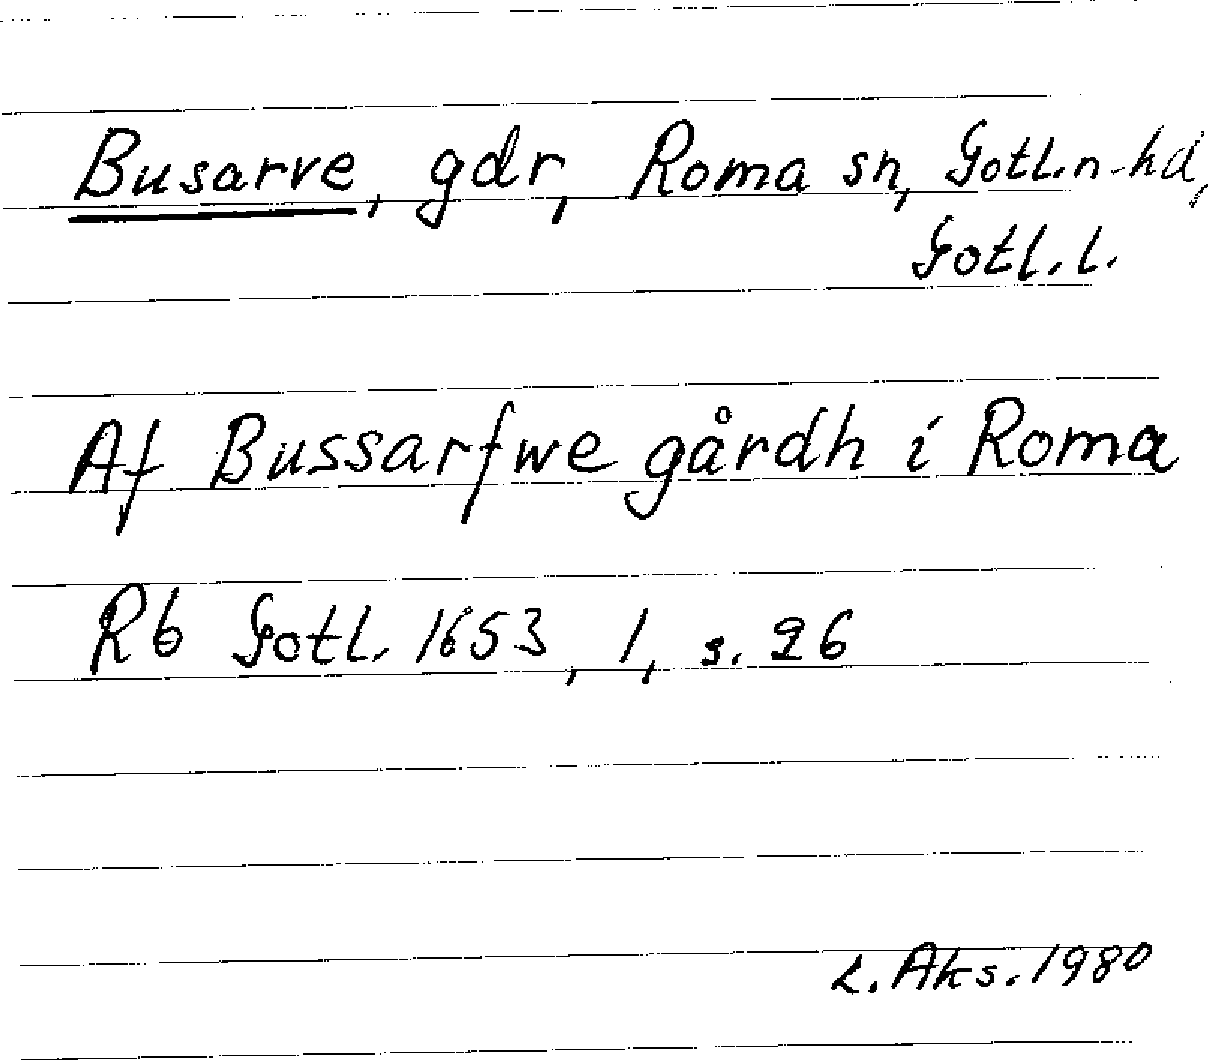 Busarve, gdr, Roma sn, Gotl.n.hd,
Gotl. l.
Af Bussarfwe gårdh i Roma
Rb Gotl. 1653, 1, s. 26
L. Aks. 1980